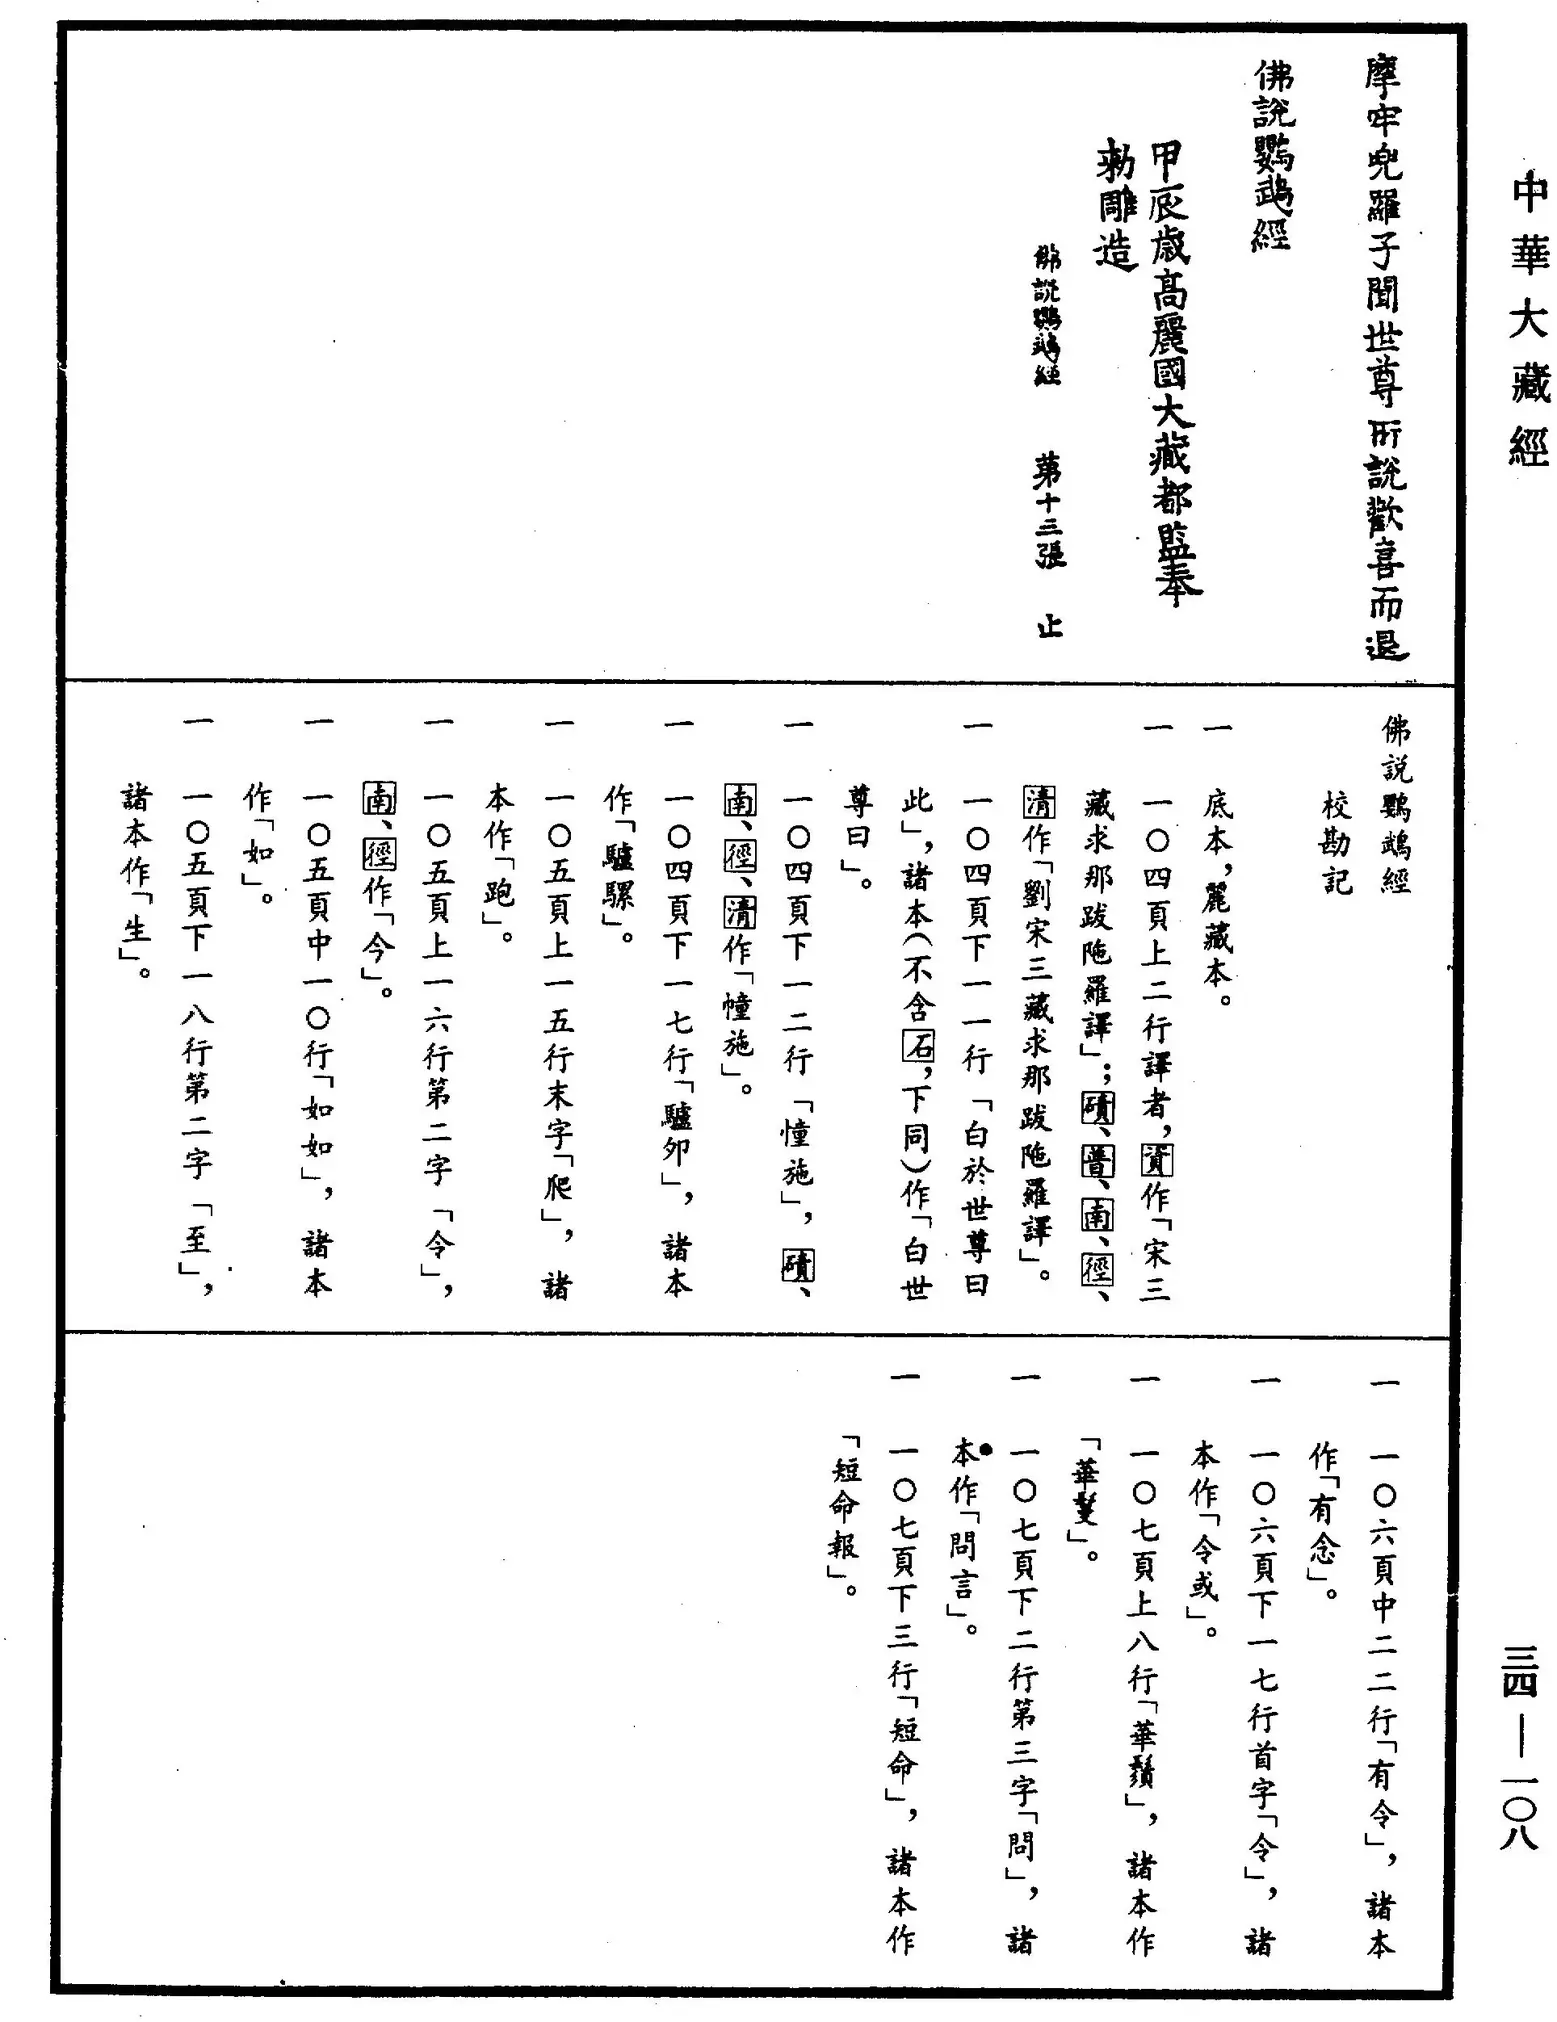 中華大藏經
摩牢兜羅子聞世尊所說歡喜而退
佛說鸚鵡經
甲辰歲高麗國大藏都監奉
勅雕造
佛說鸚鵡經　第十三張　止
佛説鸚鵡經
校勘記
一　底本，麗藏本。
一　一〇四頁上二行譯者，資作「宋三
藏求那跋陁羅譯」；磧、普、南、徑、
清作「劉宋三藏求那跋陁羅譯」。
一　一〇四頁下一一行「白於世尊曰
此」，諸本（不含石，下同）作「白世
尊曰」。
一　一〇四頁下一二行「憧施」，磧、
南、徑、清作「幢施」。
一　一〇四頁下一七行「驢夘」，諸本
作「驢騾」。
一　一〇五頁上一五行末字「爬」，諸
本作「跑」。
一　一〇五頁上一六行第二字「令」，
南、徑作「今」。
一　一〇五頁中一〇行「如如」，諸本
作「如」。
一　一〇五頁下一八行第二字「至」，
諸本作「生」。
一　一〇六頁中二二行「有令」，諸本
作「有念」。
一　一〇六頁下一七行首字「令」，諸
本作「令或」。
一　一〇七頁上八行「華鬚」，諸本作
「華鬘」。
一　一〇七頁下二行第三字「問」，諸
本作「問言」。
一　一〇七頁下三行「短命」，諸本作
「短命報」。
三四—一〇八